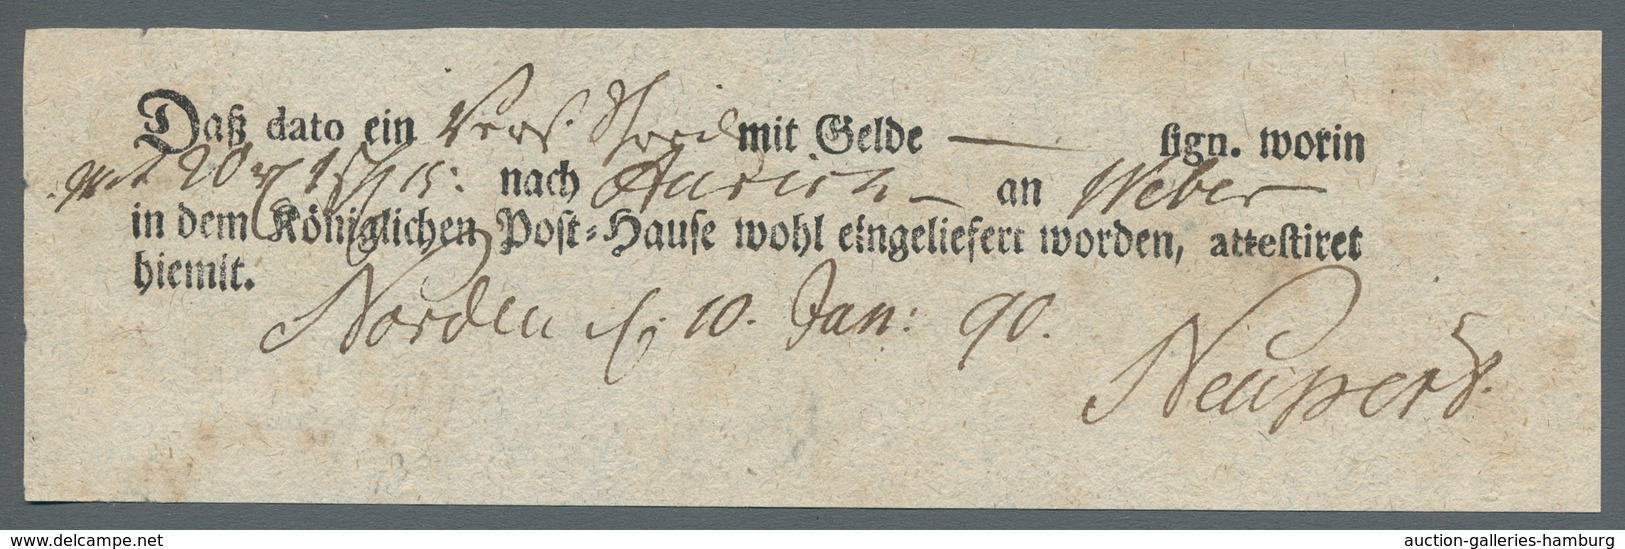 Daß dato ein mit Gelde — sign. worin
20 nach Aurich an Weber
in dem Königlichen Post-Hause wohl eingeliefert worden, attestiret
hiemit.
Norden d. 10. Jan: 90.
Neupert.
www.delcampe.net
auction-galleries-hamburg